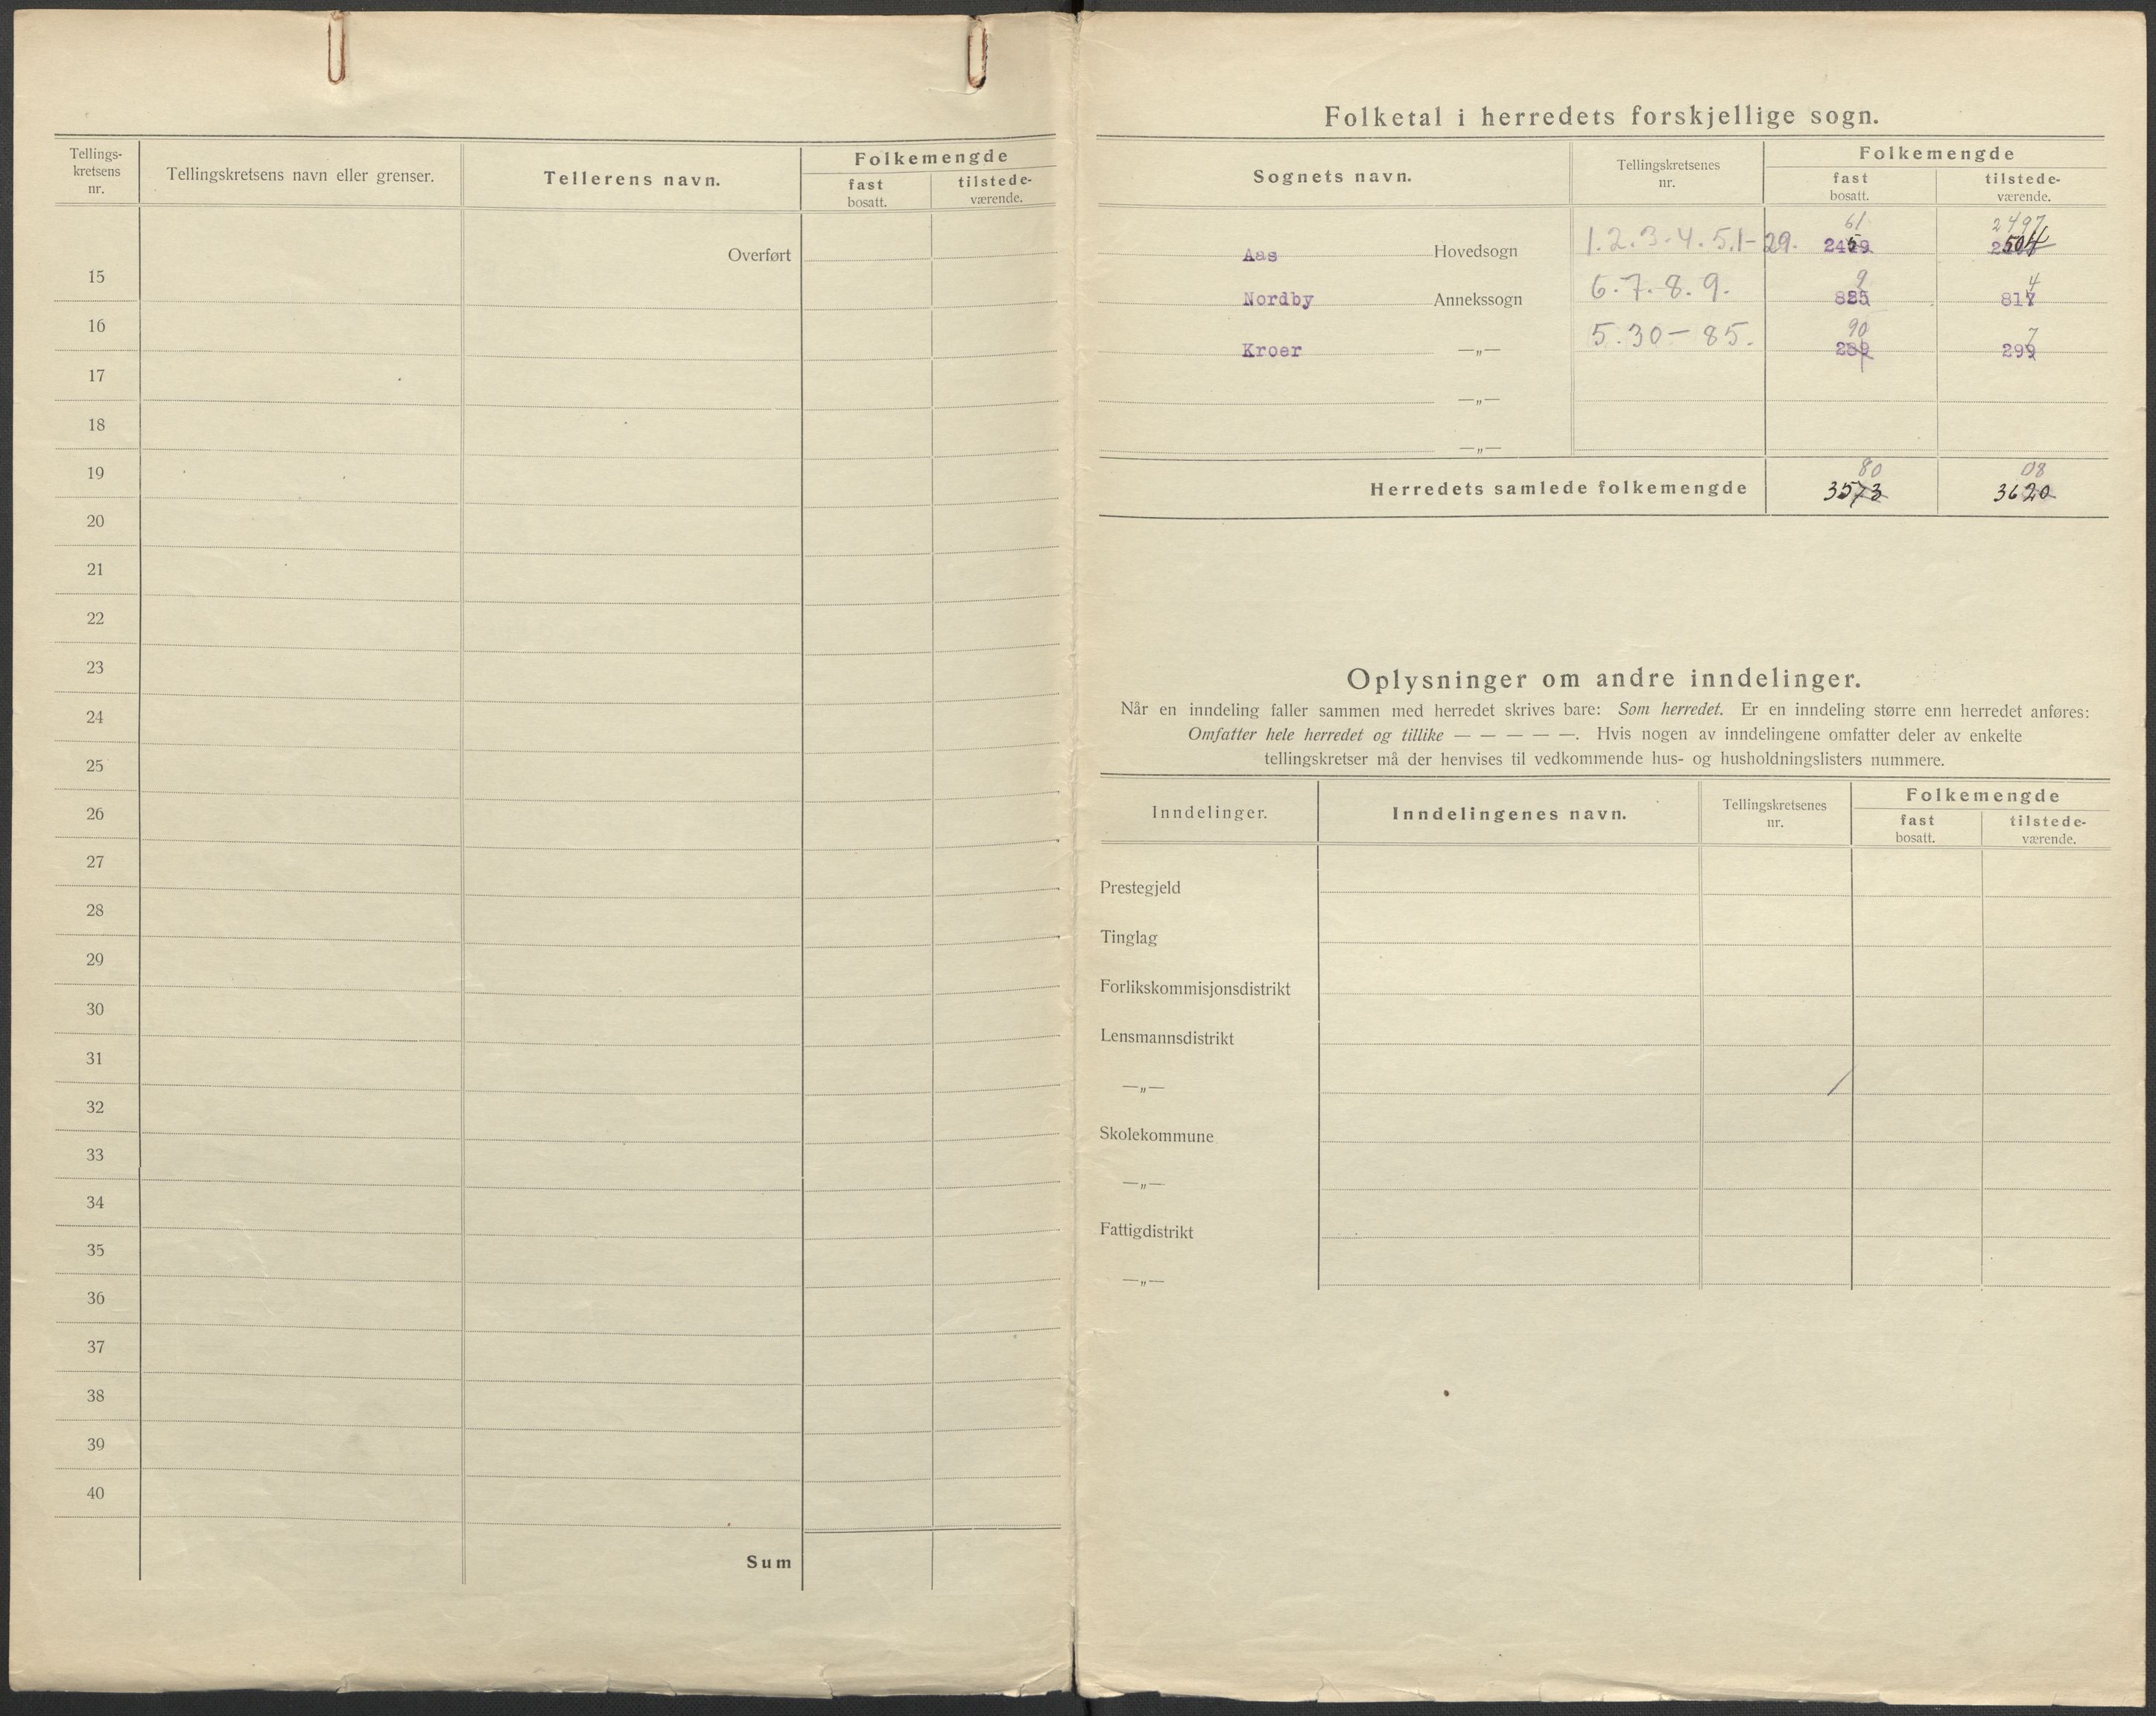 Tellings-
kretsens
nr.
Tellingskretsens navn eller grenser.
Tellerens navn.
Folkemengde
fast
bosatt.
tilstede-
værende.
Overført
15
16
17
18
19
20
21
22
23
24
25
26
27
28
29
30
31
32
33
34
35
36
37
38
39
40
Sum
Folketal i herredets forskjellige sogn.
Sognets navn.
Tellingskretsenes
nr.
Folkemengde
fast
bosatt.
tilstede-
værende.
61 2497
Aas Hovedsogn 1.2.3.4.5.1-29. 2459 2504
9 4
Nordby Annekssogn 6.7.8.9. 825 817
90 7
Kroer —„— 5.30-85. 289 299
—„—
—„—
80 08
Herredets samlede folkemengde 3573 3620
Oplysninger om andre inndelinger.
Når en inndeling faller sammen med herredet skrives bare: Som herredet. Er en inndeling større enn herredet anføres:
Omfatter hele herredet og tillike — — — — —. Hvis nogen av inndelingene omfatter deler av enkelte
tellingskretser må der henvises til vedkommende hus- og husholdningslisters nummere.
Inndelinger.
Inndelingenes navn.
Tellingskretsenes
nr.
Folkemengde
fast
bosatt.
tilstede-
værende.
Prestegjeld
Tinglag
Forlikskommisjonsdistrikt
Lensmannsdistrikt
—„—
Skolekommune
—„—
Fattigdistrikt
—„—